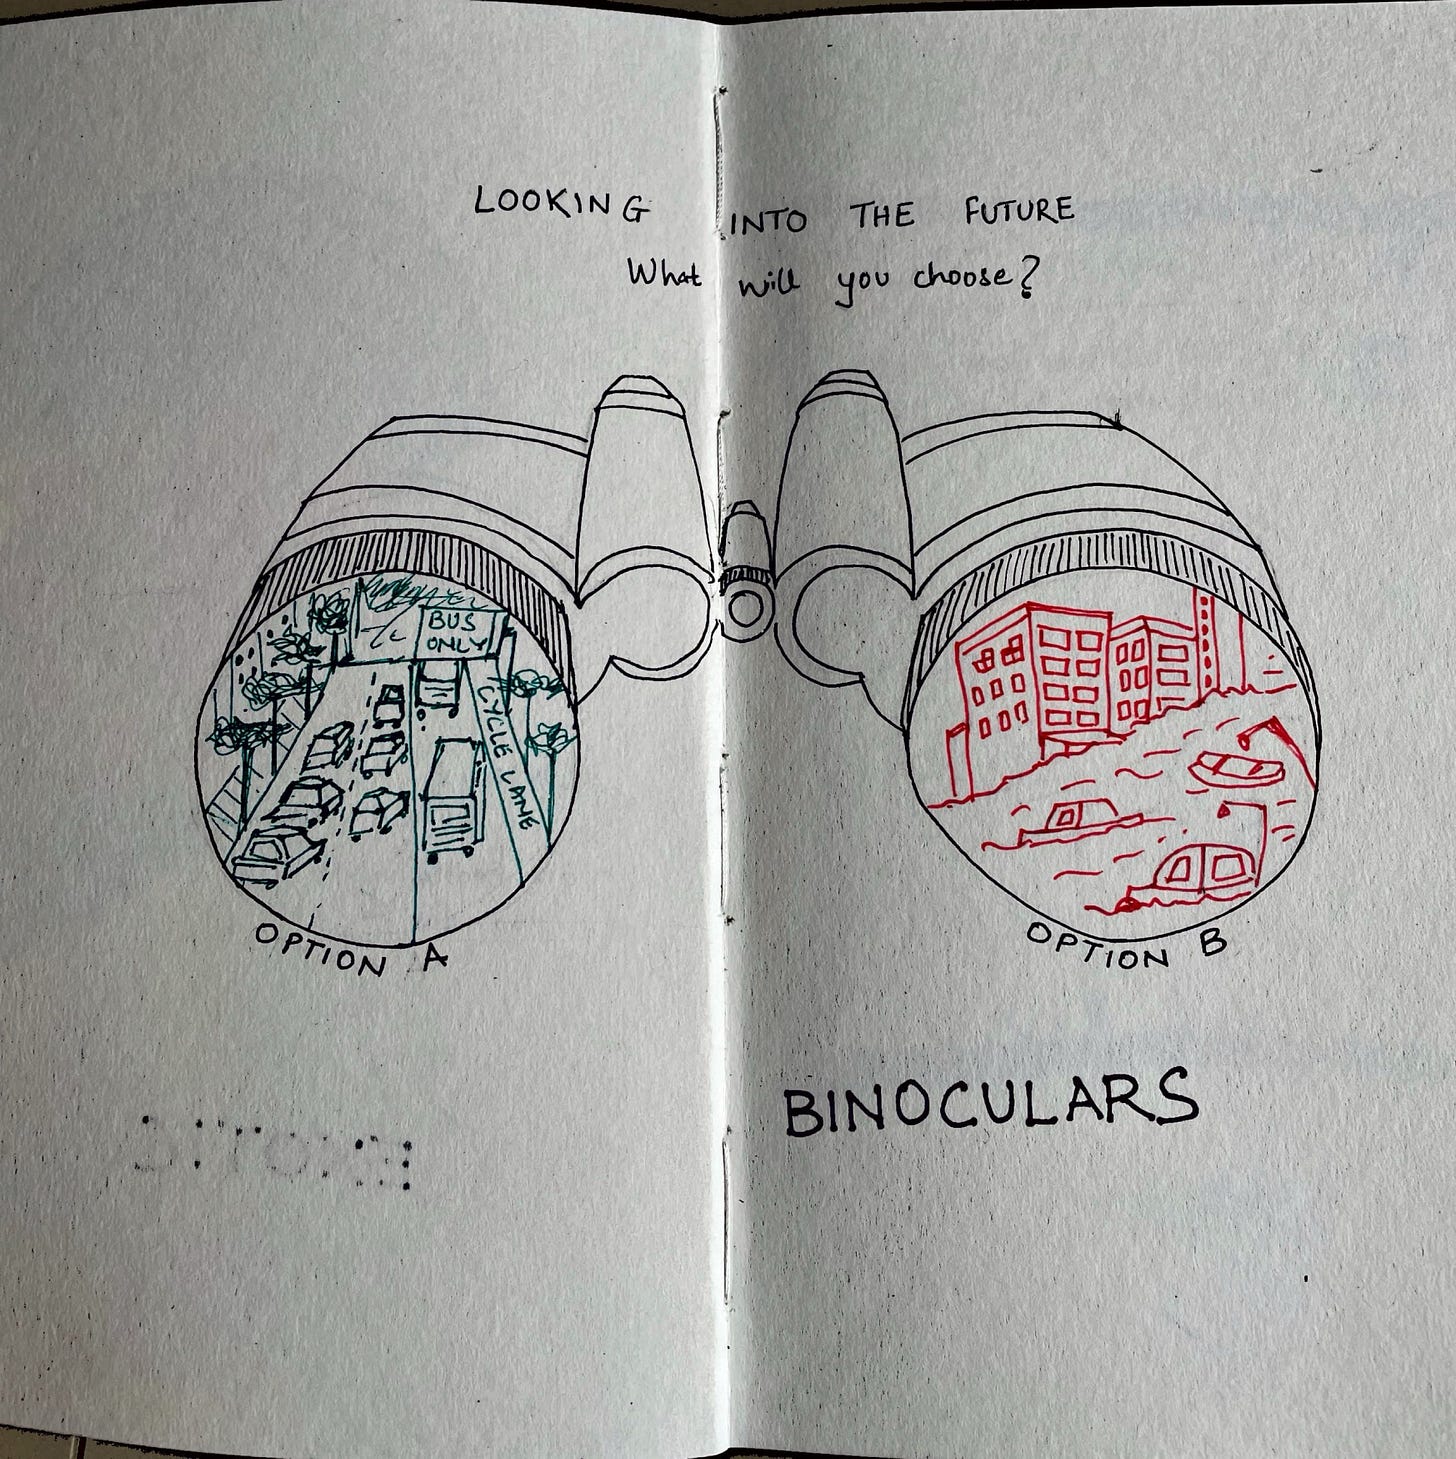 LOOKING INTO THE FUTURE
What will you choose?
BUS
ONLY
CYCLE LANE
OPTION A
OPTION B
BINOCULARS